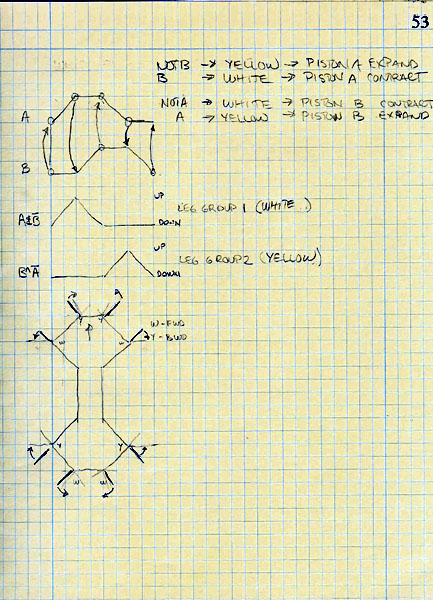 53
NOT B → YELLOW → PISTON A EXPAND
B → WHITE → PISTON A CONTRACT
NOT A → WHITE → PISTON B CONTRACT
A → YELLOW → PISTON B EXPAND
A
B
UP
A&B̅
LEG GROUP 1 (WHITE)
DOWN
UP
B^A̅
LEG GROUP 2 (YELLOW)
DOWN
Y Y
W-FWD
Y-BWD
W W
Y Y
W W